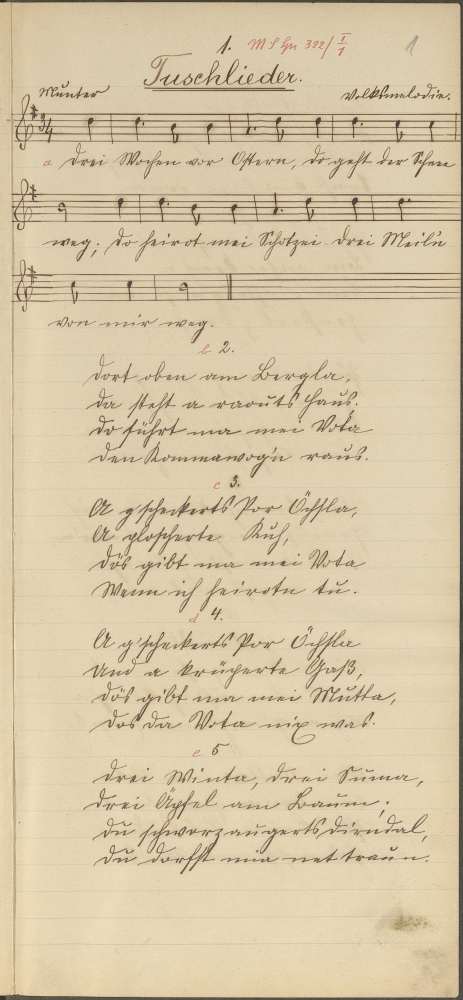 1. 1
Tuschlieder.
Munter Volksmelodie.
a Drei Wochen vor Ostern, do geht der Schnee
weg; do heirot mei Schotzei drei Meil'n
von mir weg.
b 2.
Dort oben am Bergla,
da steht a raouts Haus,
do führt ma mei Vota
den Kammawog'n raus.
c 3.
A g'scheckerts Por Öchsla,
A gloscherte Kuh,
dös gibt ma mei Vota
Wenn ich heirotn tu.
d 4.
A g'scheckerts Por Öchsla
Und a krüperte Gaß,
dös gibt ma mei Mutta,
dos da Vota nix was.
e 5
Drei Winta, drei Suma,
drei Äpfel am Baum;
du schworzaugerts Dirndal,
du dorfst mia net traun.